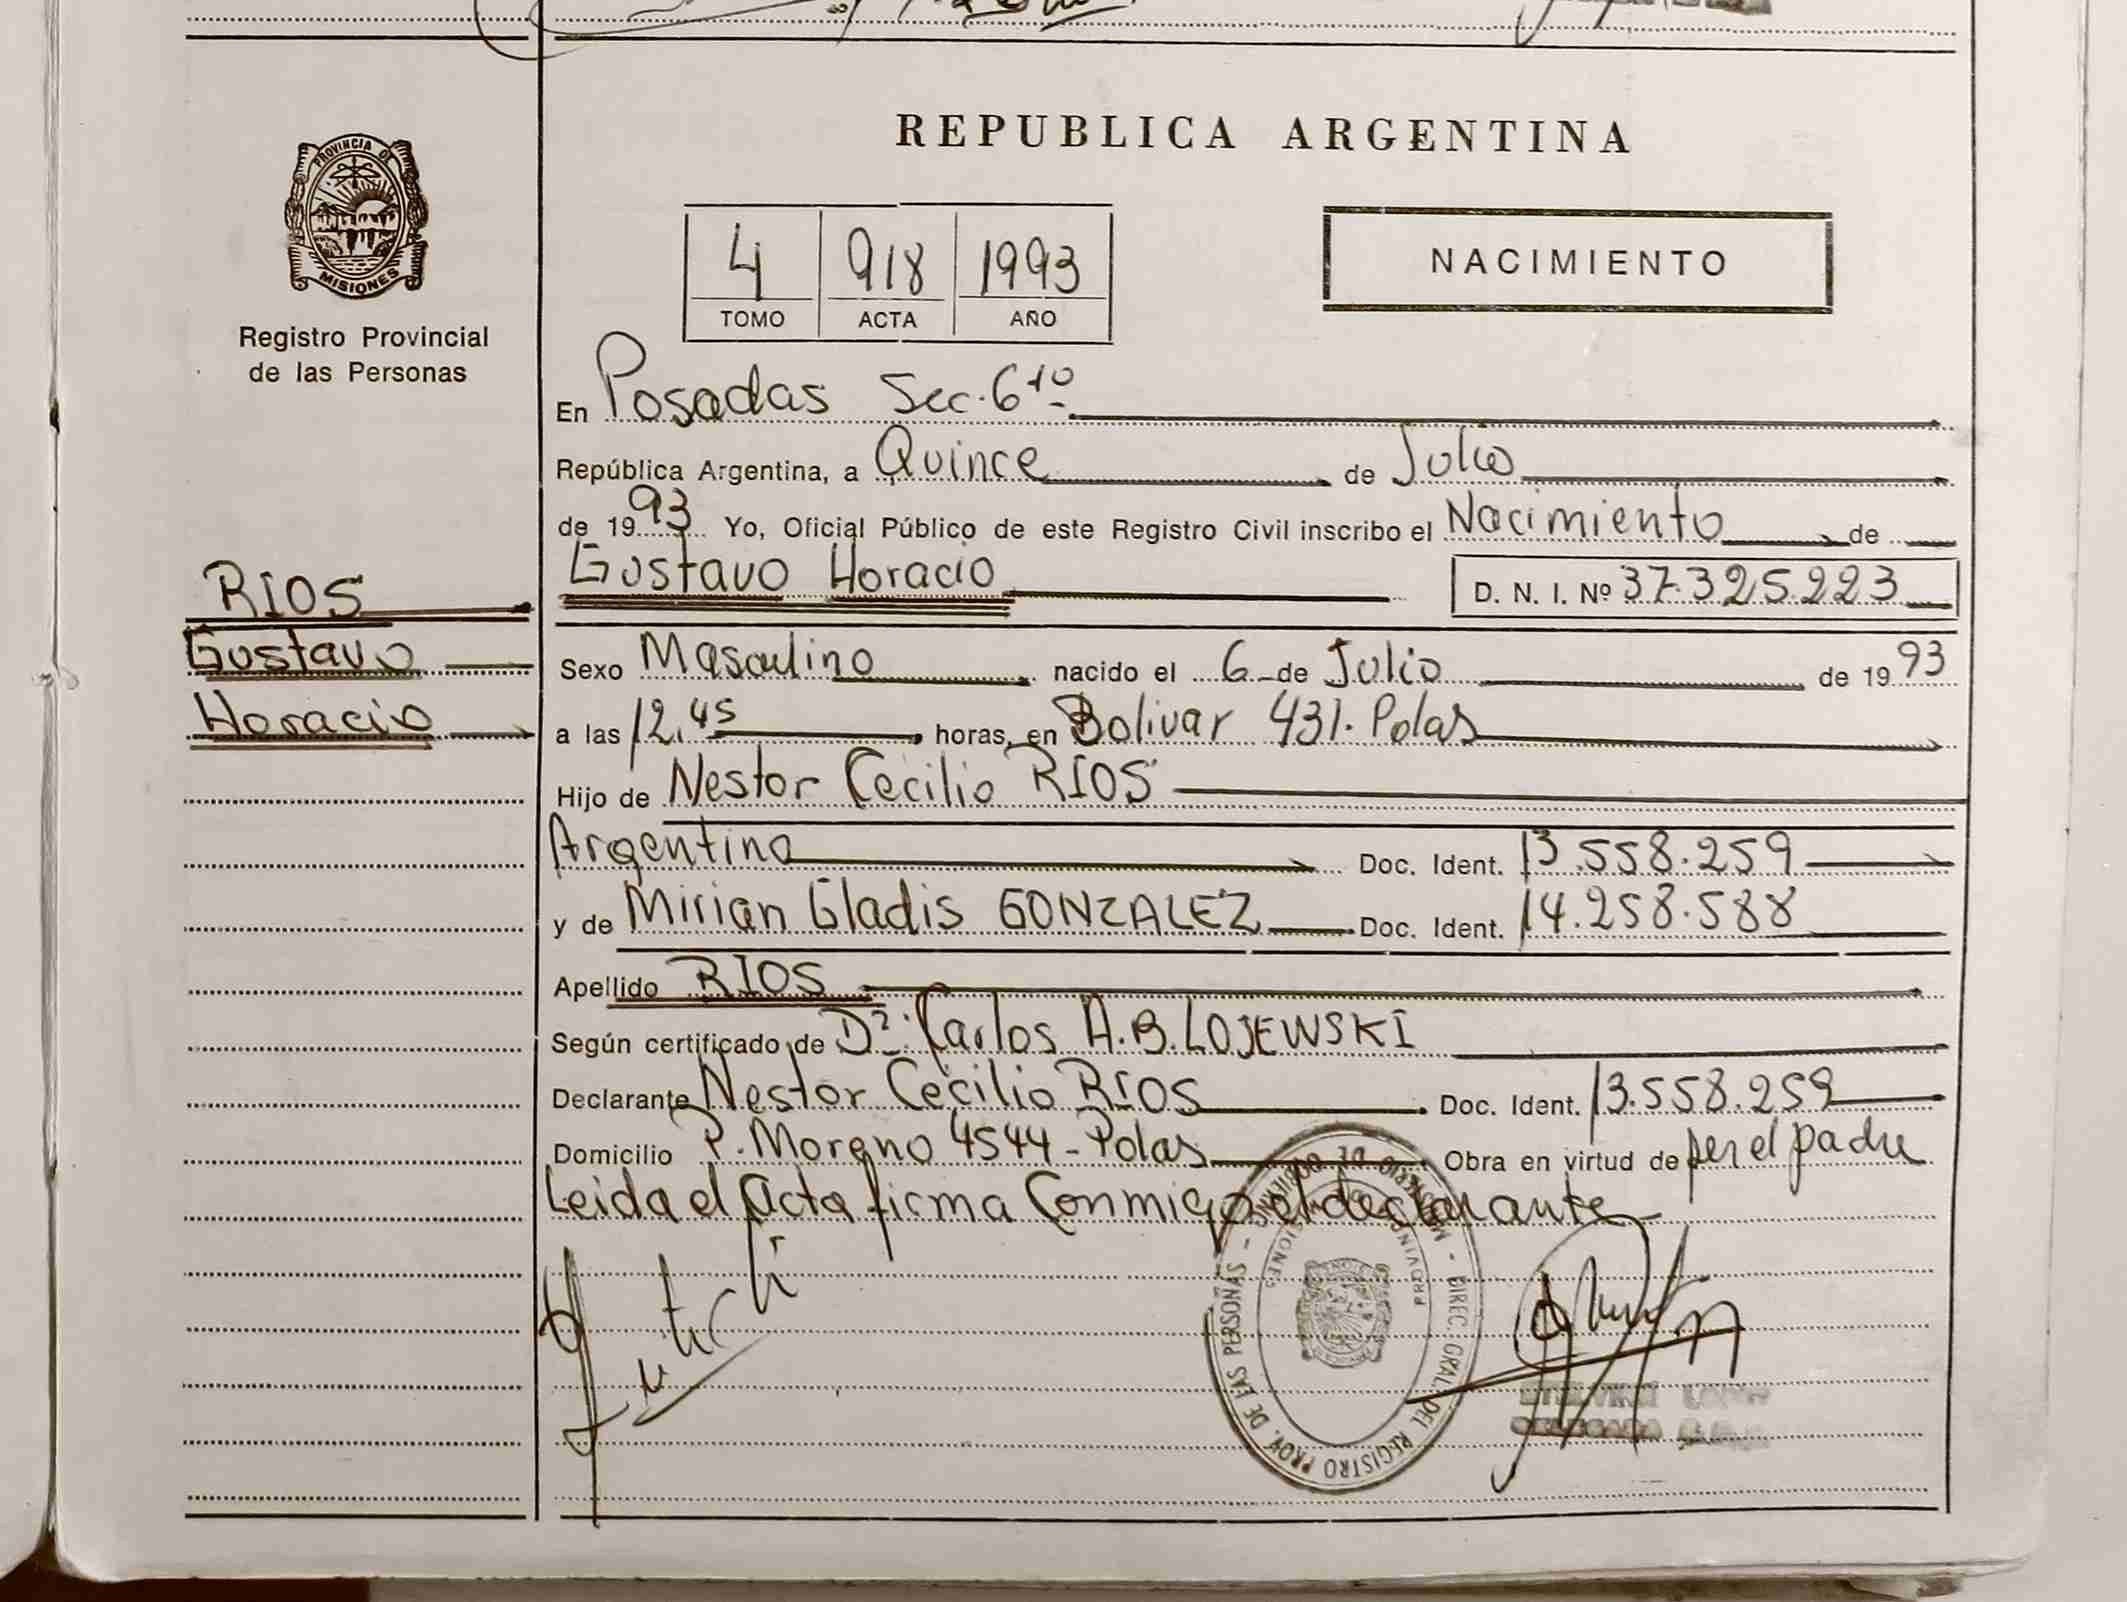 REPUBLICA ARGENTINA
PROVINCIA DE
MISIONES
Registro Provincial
de las Personas
4 918 1993
TOMO ACTA AÑO
NACIMIENTO
En Posadas Sec. 6ta
República Argentina, a Quince de Julio
de 1993 Yo, Oficial Público de este Registro Civil inscribo el Nacimiento de
Gustavo Horacio D. N. I. Nº 37.325.223
RIOS
Gustavo
Horacio
Sexo Masculino nacido el 6 de Julio de 1993
a las 12,45 horas, en Bolivar 431. Pdas
Hijo de Nestor Cecilio RIOS
Argentino Doc. Ident. 13.558.259
y de Mirian Gladis GONZALEZ Doc. Ident. 14.258.588
Apellido RIOS
Según certificado de Dr. Carlos A.B. LOJEWSKI
Declarante Nestor Cecilio RIOS Doc. Ident. 13.558.259
Domicilio P. Moreno 4544 - Pdas Obra en virtud de ser el padre
Leida el Acta firma Conmigo el declarante
MINISTERIO DE GOBIERNO - DIREC. GRAL. DEL REGISTRO PROV. DE LAS PERSONAS -
PROVINCIA DE MISIONES